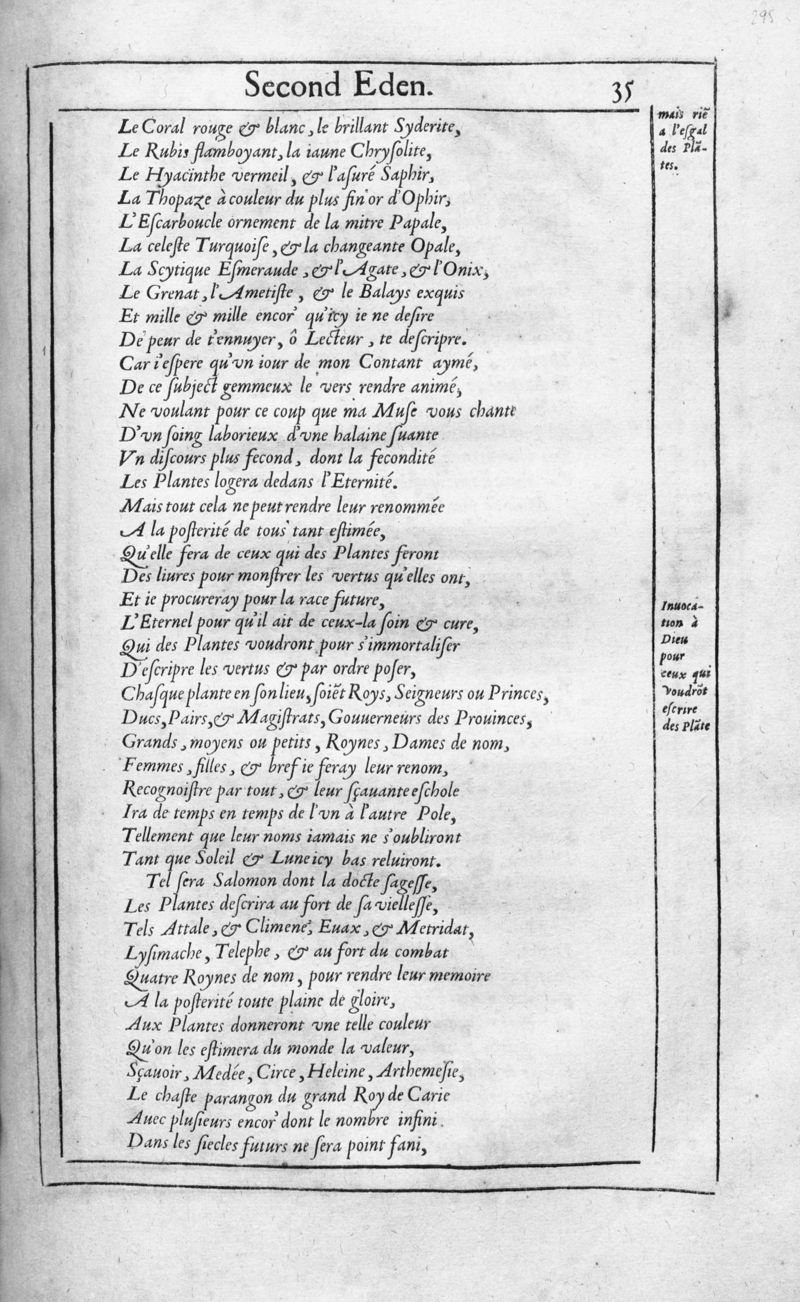 295
Second Eden.
35
Le Coral rouge & blanc, le brillant Syderite,
Le Rubis flamboyant, la iaune Chrysolite,
Le Hyacinthe vermeil, & l'asuré Saphir,
La Thopaze à couleur du plus fin or d'Ophir,
L'Escarboucle ornement de la mitre Papale,
La celeste Turquoise, & la changeante Opale,
La Scytique Esmeraude, & l'Agate, & l'Onix,
Le Grenat, l'Ametiste, & le Balays exquis
Et mille & mille encor' qu'icy ie ne desire
De peur de t'ennuyer, ô Lecteur, te descripre.
Car i'espere qu'vn iour de mon Contant aymé,
De ce subject gemmeux le vers rendre animé,
Ne voulant pour ce coup que ma Muse vous chante
D'vn soing laborieux d'vne halaine suante
Vn discours plus fecond, dont la fecondité
Les Plantes logera dedans l'Eternité.
Mais tout cela ne peut rendre leur renommée
A la posterité de tous tant estimée,
Qu'elle fera de ceux qui des Plantes feront
Des liures pour monstrer les vertus qu'elles ont,
Et ie procureray pour la race future,
L'Eternel pour qu'il ait de ceux-la soin & cure,
Qui des Plantes voudront pour s'immortaliser
D'escripre les vertus & par ordre poser,
Chasque plante en son lieu, soiēt Roys, Seigneurs ou Princes,
Ducs, Pairs, & Magistrats, Gouuerneurs des Prouinces,
Grands, moyens ou petits, Roynes, Dames de nom,
Femmes, filles, & bref ie feray leur renom,
Recognoistre par tout, & leur sçauante eschole
Ira de temps en temps de l'vn à l'autre Pole,
Tellement que leur noms iamais ne s'oubliront
Tant que Soleil & Lune icy bas reluiront.
Tel sera Salomon dont la docte sagesse,
Les Plantes descrira au fort de sa viellesse,
Tels Attale, & Climene, Euax, & Metridat,
Lysimache, Telephe, & au fort du combat
Quatre Roynes de nom, pour rendre leur memoire
A la posterité toute plaine de gloire,
Aux Plantes donneront vne telle couleur
Qu'on les estimera du monde la valeur,
Sçauoir, Medée, Circe, Heleine, Arthemesie,
Le chaste parangon du grand Roy de Carie
Auec plusieurs encor' dont le nombre infini
Dans les siecles futurs ne sera point fani,
mais riē
a l'esgal
des Plā-
tes.
Inuoca-
tion à
Dieu
pour
ceux qui
voudrōt
escrire
des Plāte